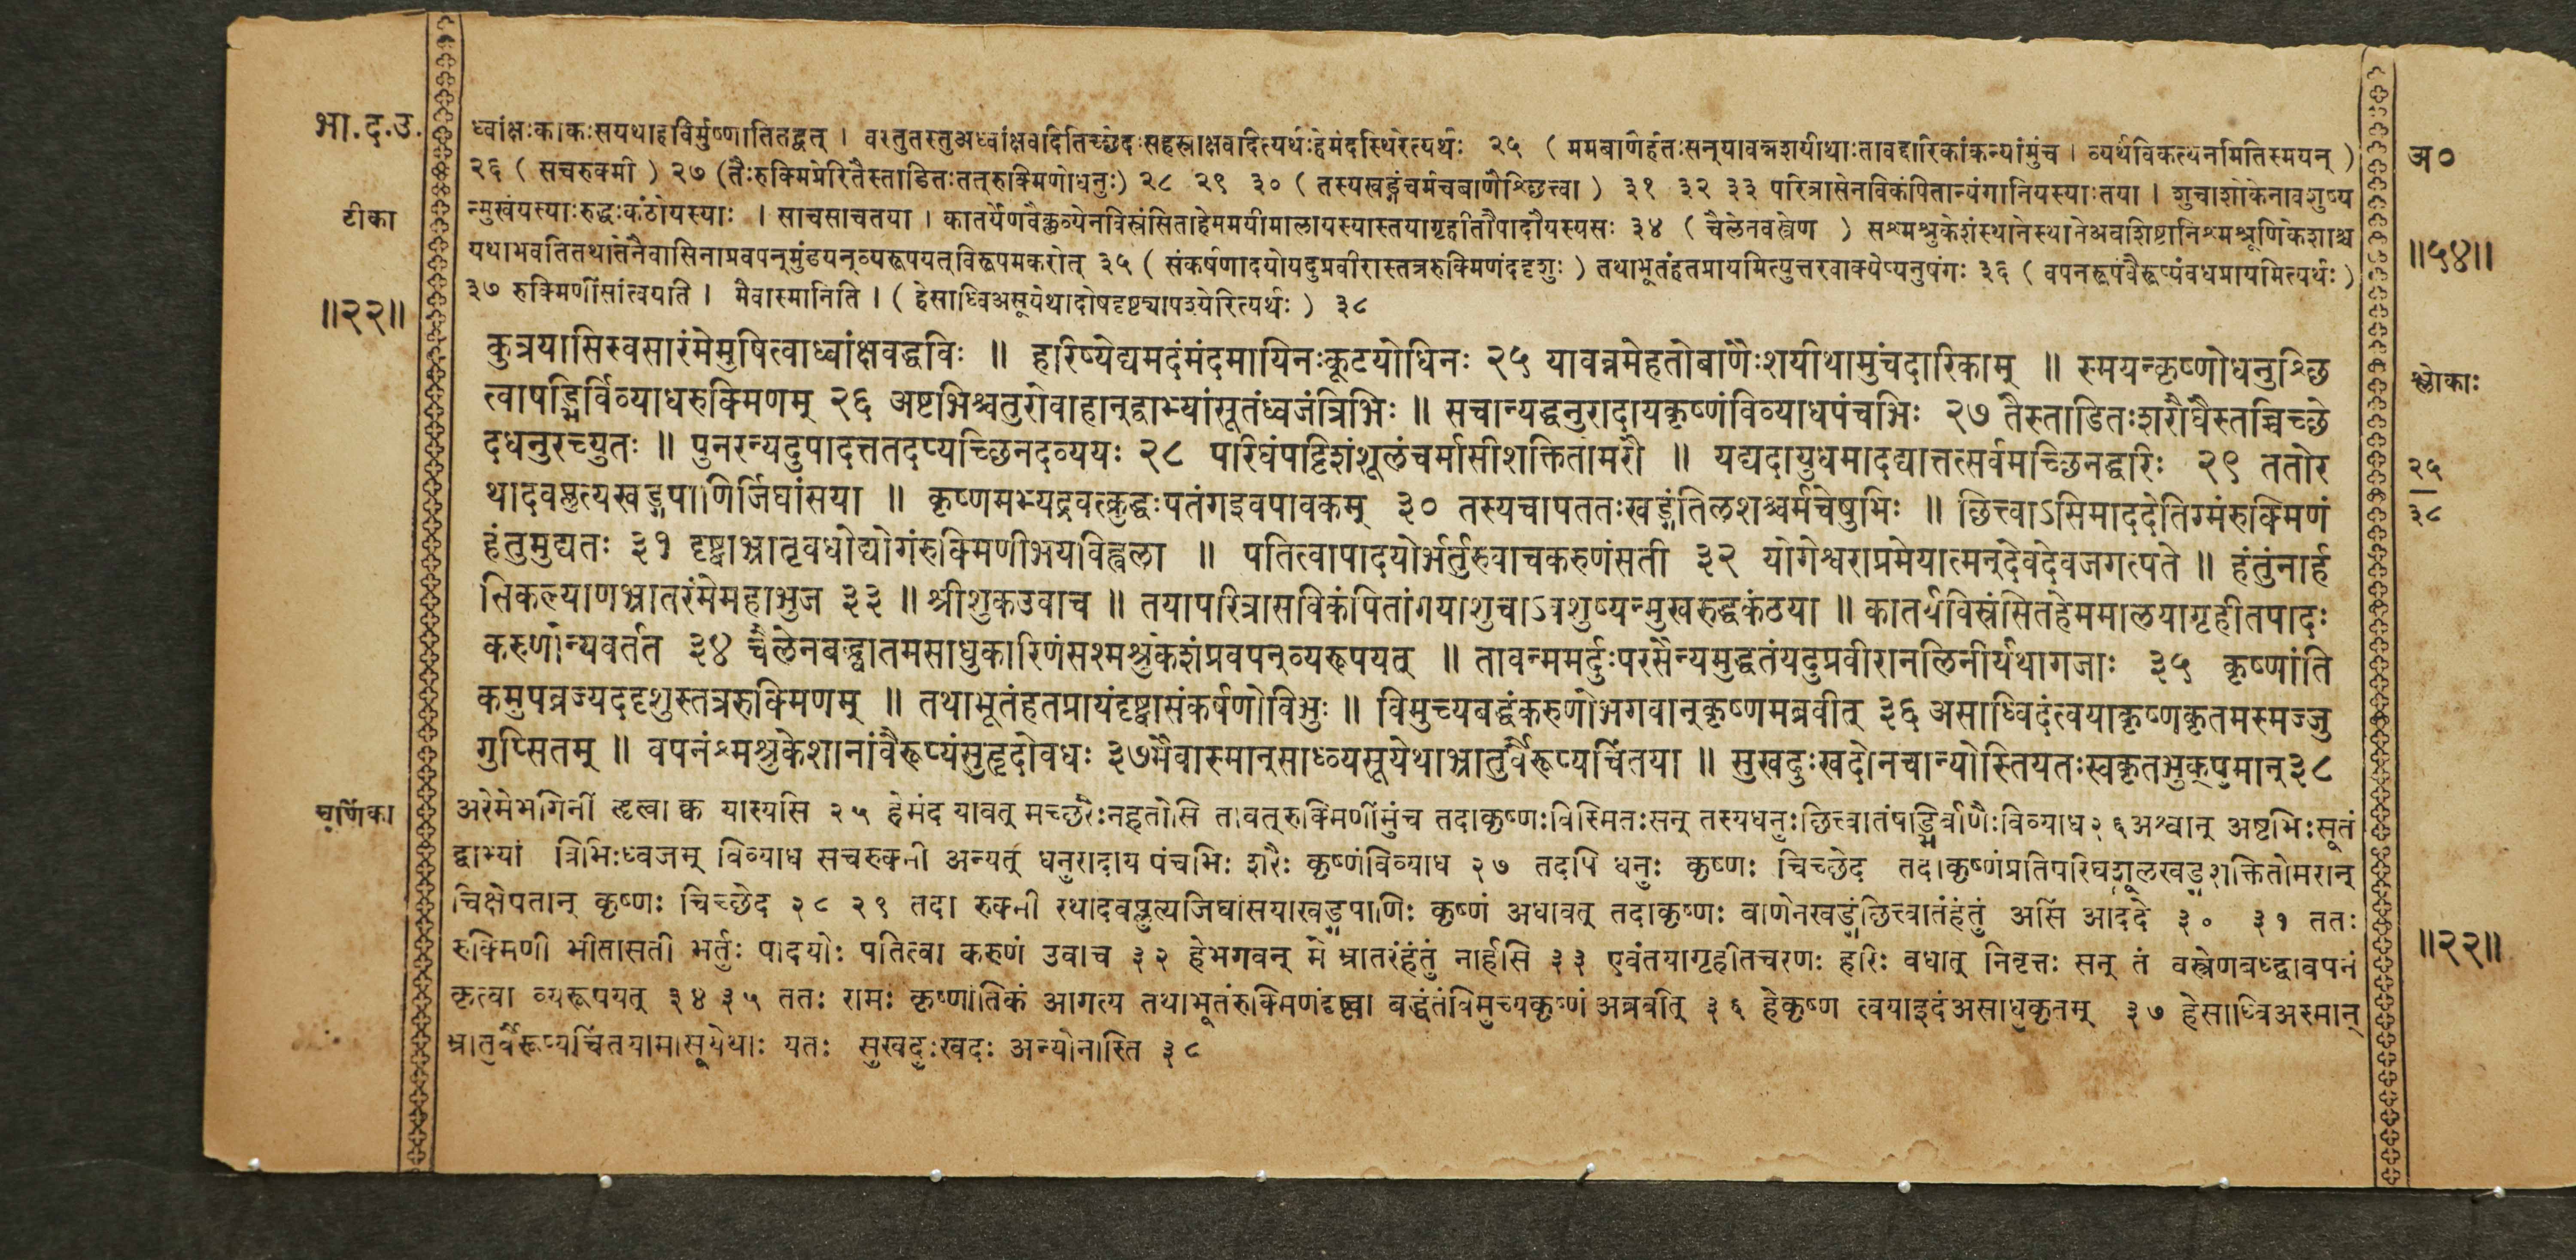 भा.द.उ.
ध्वांक्षःकाकःसयथाहविर्मुष्णातितद्वत् । वस्तुतस्तुअध्वांक्षवदितिच्छेदःसहस्राक्षवदित्यर्थःहेमंदस्थिरेत्यर्थः २५ ( ममबाणैर्हतःसन्यावन्नशयीथाःतावद्दारिकांकन्यांमुंच । व्यर्थविकत्थनमितिस्मयन् )
अ०
२६ ( सचरुक्मी ) २७ (तैःरुक्मिप्रेरितैस्ताडितःतत्रुक्मिणोधनुः) २८ २९ ३० ( तस्यखड्गंचर्मचबाणैश्छित्त्वा ) ३१ ३२ ३३ परित्रासेनविकंपितान्यंगानियस्याःतया । शुचाशोकेनावशुष्य
टीका
न्मुखंयस्याःरुद्धःकंठोयस्याः । साचसाचतया । कातर्येणवैक्लव्येनविस्रंसिताहेममयीमालायस्यास्तयागृहीतौपादौयस्यसः ३४ ( चैलेनवस्त्रेण ) सश्मश्रुकेशंस्थानेस्थानेअवशिष्टानिश्मश्रूणिकेशाश्च
यथाभवतितथातेनैवासिनाप्रवपन्मुंडयन्व्यरूपयत्विरूपमकरोत् ३५ ( संकर्षणादयोयदुप्रवीरास्तत्ररुक्मिणंददृशुः ) तथाभूतंहतप्रायमित्युत्तरवाक्येप्यनुषंगः ३६ ( वपनरूपंवैरूप्यंवधप्रायमित्यर्थः )
॥५४॥
॥२२॥
३७ रुक्मिणींसांत्वयति । मैवास्मानिति । ( हेसाध्विअसूयेथादोषदृष्ट्यापश्येरित्यर्थः ) ३८
कुत्रयासिस्वसारंमेमुषित्वाध्वांक्षवद्धविः ॥ हरिष्येद्यमदंमंदमायिनःकूटयोधिनः २५ यावन्नमेहतोबाणैःशयीथामुंचदारिकाम् ॥ स्मयन्कृष्णोधनुश्छि
श्लोकाः
त्त्वाषड्भिर्विव्याधरुक्मिणम् २६ अष्टभिश्चतुरोवाहान्द्वाभ्यांसूतंध्वजंत्रिभिः ॥ सचान्यद्धनुरादायकृष्णंविव्याधपंचभिः २७ तैस्ताडितःशरौघैस्तच्चिच्छे
दधनुरच्युतः ॥ पुनरन्यदुपादत्ततदप्यच्छिनदव्ययः २८ परिघंपट्टिशंशूलंचर्मासीशक्तितोमरौ ॥ यद्यदायुधमादद्यात्तत्सर्वमच्छिनद्धरिः २९ ततोर
२५
थादवप्लुत्यखड्गपाणिर्जिघांसया ॥ कृष्णमभ्यद्रवत्क्रुद्धःपतंगइवपावकम् ३० तस्यचापततःखड्गंतिलशश्चर्मचेषुभिः ॥ छित्त्वाऽसिमाददेतिग्मंरुक्मिणं
३८
हंतुमुद्यतः ३१ दृष्ट्वाभ्रातृवधोद्योगंरुक्मिणीभयविह्वला ॥ पतित्वापादयोर्भर्तुरुवाचकरुणंसती ३२ योगेश्वराप्रमेयात्मन्देवदेवजगत्पते ॥ हंतुंनार्ह
सिकल्याणभ्रातरंमेमहाभुज ३३ ॥ श्रीशुकउवाच ॥ तयापरित्रासविकंपितांगयाशुचाऽवशुष्यन्मुखरुद्धकंठया ॥ कातर्यविस्रंसितहेममालयागृहीतपादः
करुणोन्यवर्तत ३४ चैलेनबद्ध्वातमसाधुकारिणंसश्मश्रुकेशंप्रवपन्व्यरूपयत् ॥ तावन्ममर्दुःपरसैन्यमुद्धतंयदुप्रवीरानलिनीर्यथागजाः ३५ कृष्णांति
कमुपव्रज्यददृशुस्तत्ररुक्मिणम् ॥ तथाभूतंहतप्रायंदृष्ट्वासंकर्षणोविभुः ॥ विमुच्यबद्धंकरुणोभगवान्कृष्णमब्रवीत् ३६ असाध्विदंत्वयाकृष्णकृतमस्मज्जु
गुप्सितम् ॥ वपनंश्मश्रुकेशानांवैरूप्यंसुहृदोवधः ३७मैवास्मान्साध्व्यसूयेथाभ्रातुर्वैरूप्यचिंतया ॥ सुखदुःखदोनचान्योस्तियतःस्वकृतभुक्पुमान्३८
चूर्णिका
अरेमेभगिनीं हृत्वा क्व यास्यसि २५ हेमंद यावत् मच्छरैःनहतोसि तावत्रुक्मिणींमुंच तदाकृष्णःविस्मितःसन् तस्यधनुःछित्त्वातंषड्भिर्बाणैःविव्याध२६अश्वान् अष्टभिःसूतं
द्वाभ्यां त्रिभिःध्वजम् विव्याध सचरुक्मी अन्यत् धनुरादाय पंचभिः शरैः कृष्णंविव्याध २७ तदपि धनुः कृष्णः चिच्छेद तदाकृष्णंप्रतिपरिघशूलखड्गशक्तितोमरान्
चिक्षेपतान् कृष्णः चिच्छेद २८ २९ तदा रुक्मी रथादवप्लुत्यजिघांसयाखड्गपाणिः कृष्णं अधावत् तदाकृष्णः बाणेनखड्गंछित्त्वातंहंतुं असिं आददे ३० ३१ ततः
रुक्मिणी भीतासती भर्तुः पादयोः पतित्वा करुणं उवाच ३२ हेभगवन् मे भ्रातरंहंतुं नार्हसि ३३ एवंतयागृहीतचरणः हरिः वधात् निवृत्तः सन् तं वस्त्रेणबध्द्वावपनं
॥२२॥
कृत्वा व्यरूपयत् ३४ ३५ ततः रामः कृष्णांतिकं आगत्य तथाभूतंरुक्मिणंदृष्ट्वा बद्धंतंविमुच्यकृष्णं अब्रवीत् ३६ हेकृष्ण त्वयाइदंअसाधुकृतम् ३७ हेसाध्विअस्मान्
भ्रातुर्वैरूप्यचिंतयामासूयेथाः यतः सुखदुःखदः अन्योनास्ति ३८